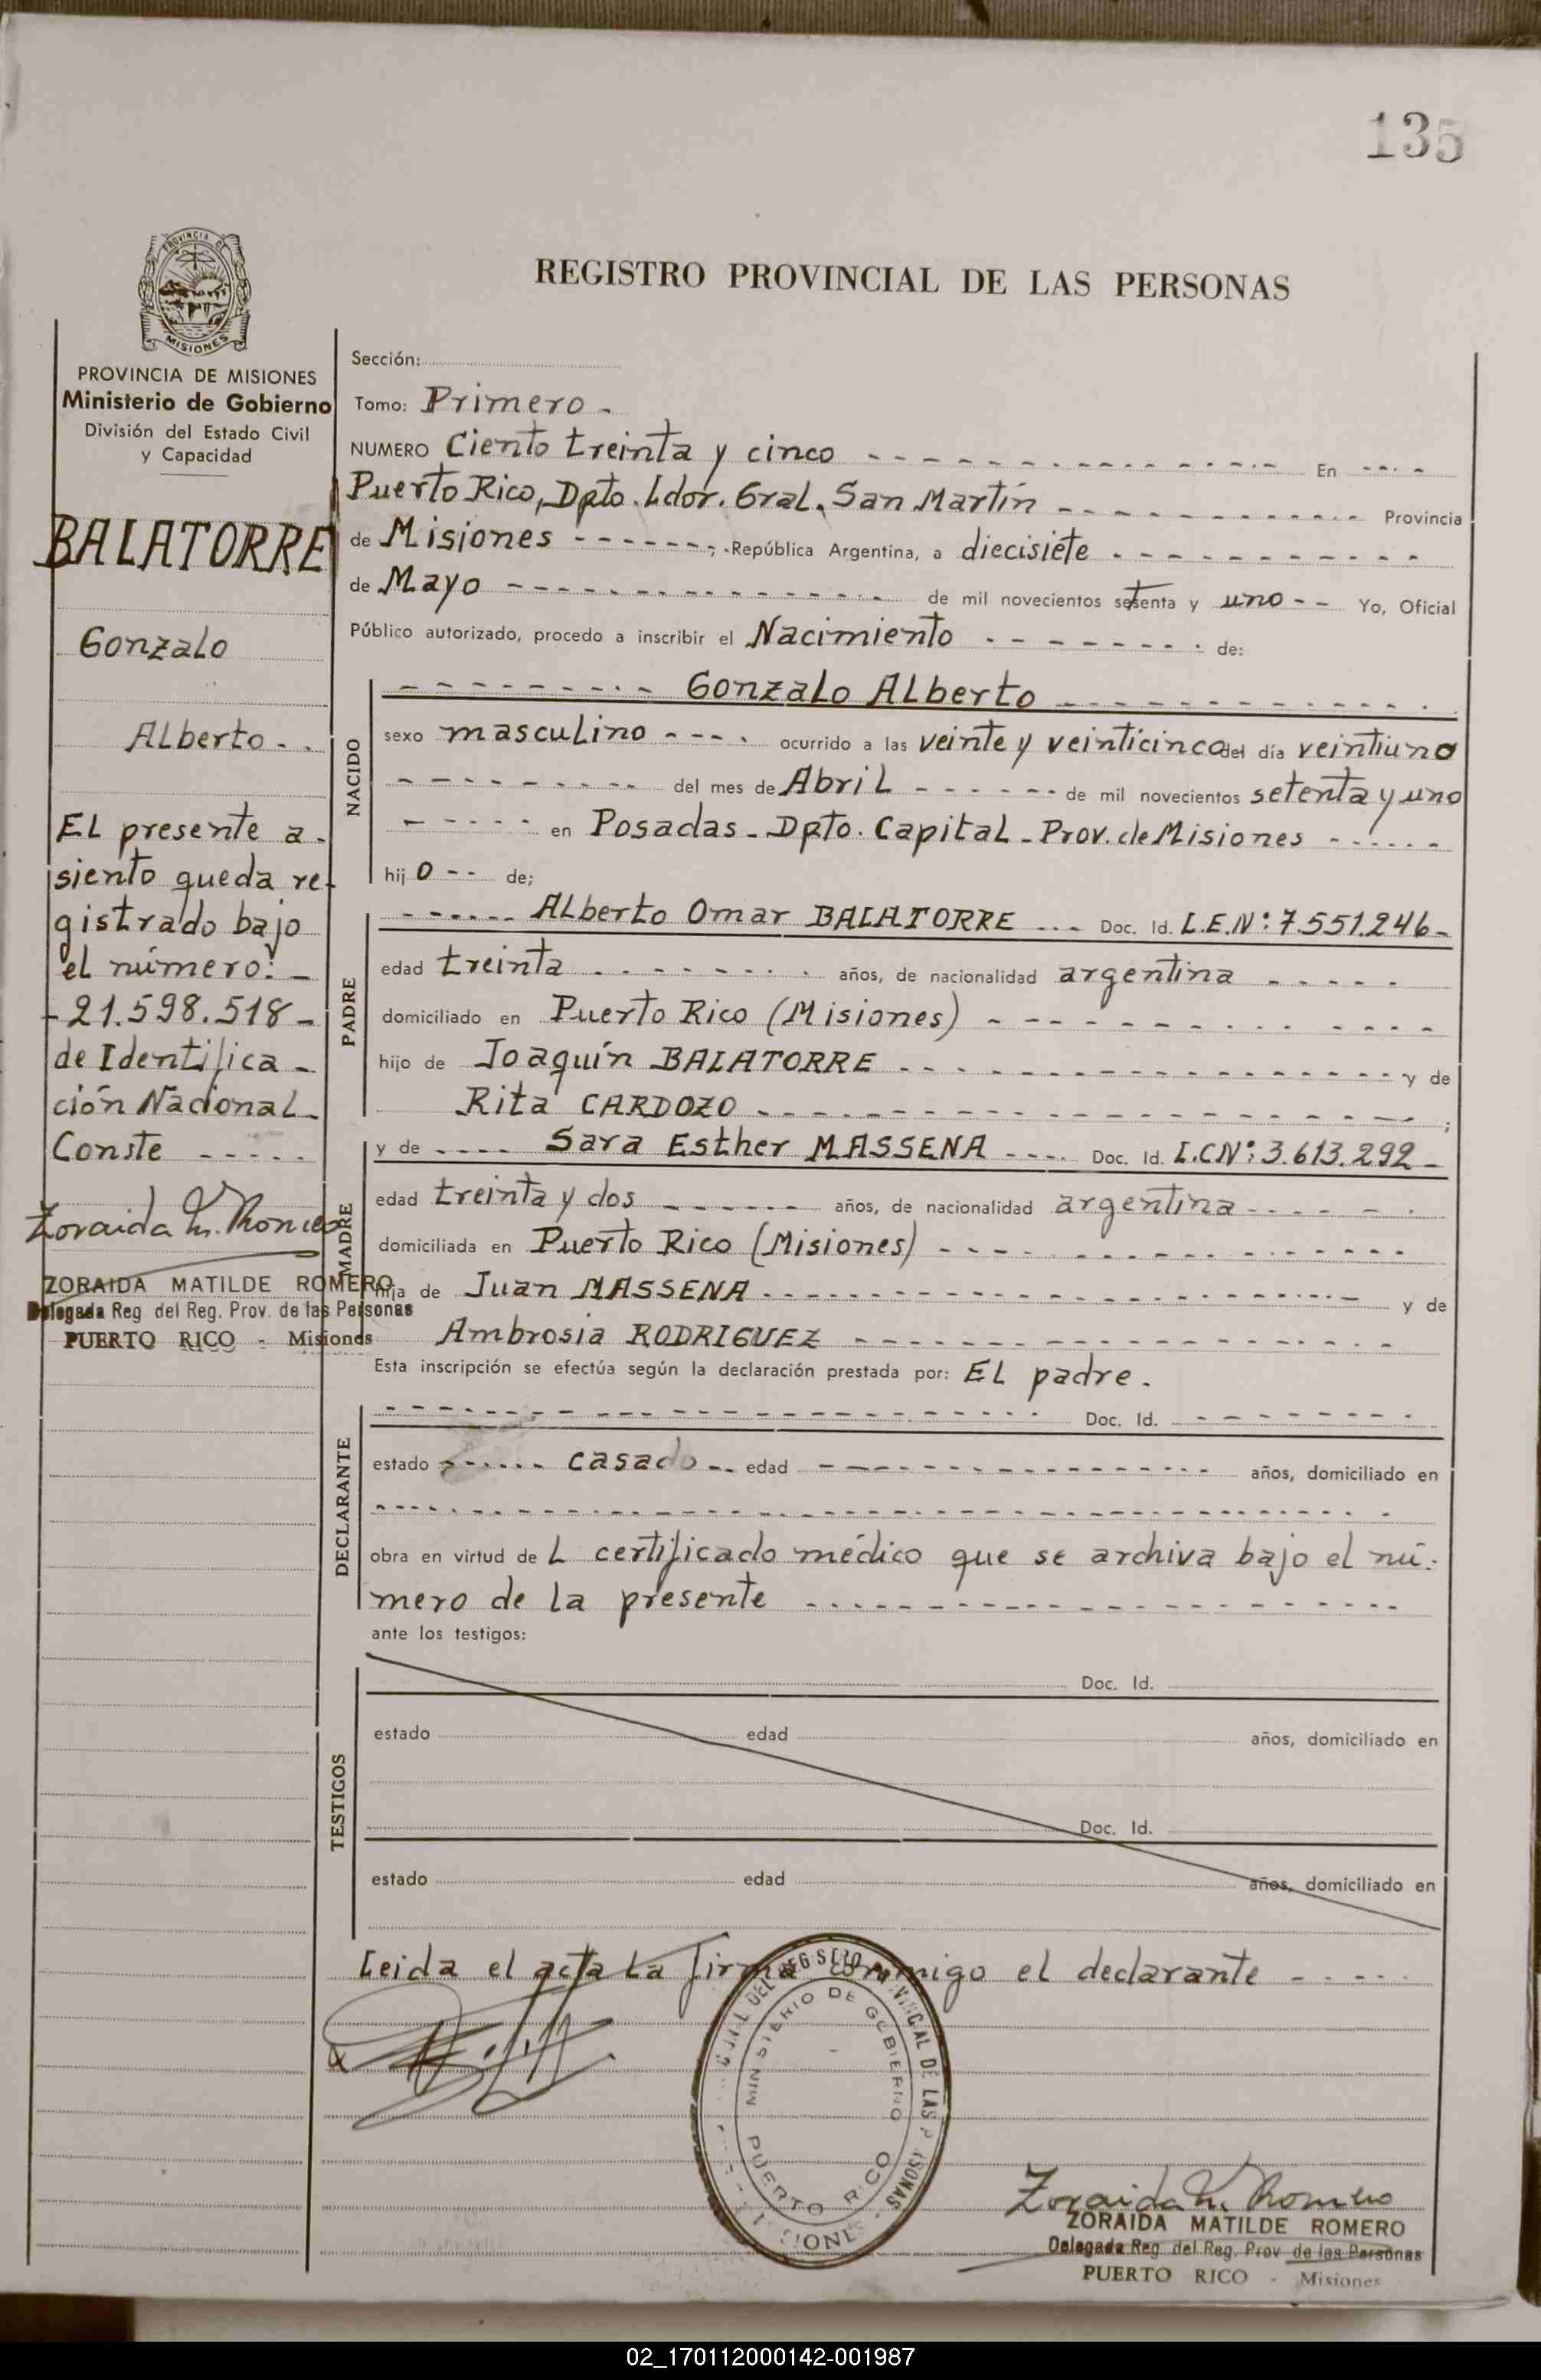 135
PROVINCIA DE
MISIONES
REGISTRO PROVINCIAL DE LAS PERSONAS
PROVINCIA DE MISIONES
Ministerio de Gobierno
División del Estado Civil
y Capacidad
BALATORRE
Gonzalo
Alberto - .
EL presente a-
siento queda re-
gistrado bajo
el número: -
- 21.598.518 -
de Identifica -
ción Nacional -
Conste - - - - -
Zoraida M. Romero
ZORAIDA MATILDE ROMERO
Delegada Reg. del Reg. Prov. de las Personas
PUERTO RICO - Misiones
Sección:
Tomo: Primero -
NUMERO Ciento treinta y cinco - - - - En - - - -
Puerto Rico, Dpto. Ldor. Gral. San Martín - - - - Provincia
de Misiones - - - - ; República Argentina, a diecisiete - - - -
de Mayo - - - - de mil novecientos setenta y uno - - Yo, Oficial
Público autorizado, procedo a inscribir el Nacimiento - - - - de:
NACIDO
- - - - Gonzalo Alberto - - - -
sexo masculino - - - - ocurrido a las veinte y veinticinco del día veintiuno
- - - - del mes de Abril - - - - de mil novecientos setenta y uno
- - - - en Posadas - Dpto. Capital - Prov. de Misiones - - - -
hij o - - de;
PADRE
- - - - Alberto Omar BALATORRE - - - Doc. Id. L.E.Nº: 7.551.246 -
edad treinta - - - - años, de nacionalidad argentina - - - -
domiciliado en Puerto Rico (Misiones) - - - -
hijo de Joaquín BALATORRE - - - - y de
Rita CARDOZO - - - - ;
MADRE
y de - - - - Sara Esther MASSENA - - - - Doc. Id. L.C.Nº: 3.613.292 -
edad treinta y dos - - - - años, de nacionalidad argentina - - - -
domiciliada en Puerto Rico (Misiones) - - - -
hija de Juan MASSENA - - - - y de
Ambrosia RODRIGUEZ - - - -
Esta inscripción se efectúa según la declaración prestada por: EL padre.
DECLARANTE
- - - - Doc. Id. - - - -
estado - - - - casado - - edad - - - - años, domiciliado en
- - - -
obra en virtud de L certificado médico que se archiva bajo el nú-
mero de la presente - - - -
ante los testigos:
TESTIGOS
Doc. Id.
estado edad años, domiciliado en
Doc. Id.
estado edad años, domiciliado en
Leida el acta La firma conmigo el declarante - - - -
MINISTERIO DE GOBIERNO
PUERTO RICO
Zoraida M. Romero
ZORAIDA MATILDE ROMERO
Delegada Reg. del Reg. Prov. de las Personas
PUERTO RICO - Misiones
02_170112000142-001987